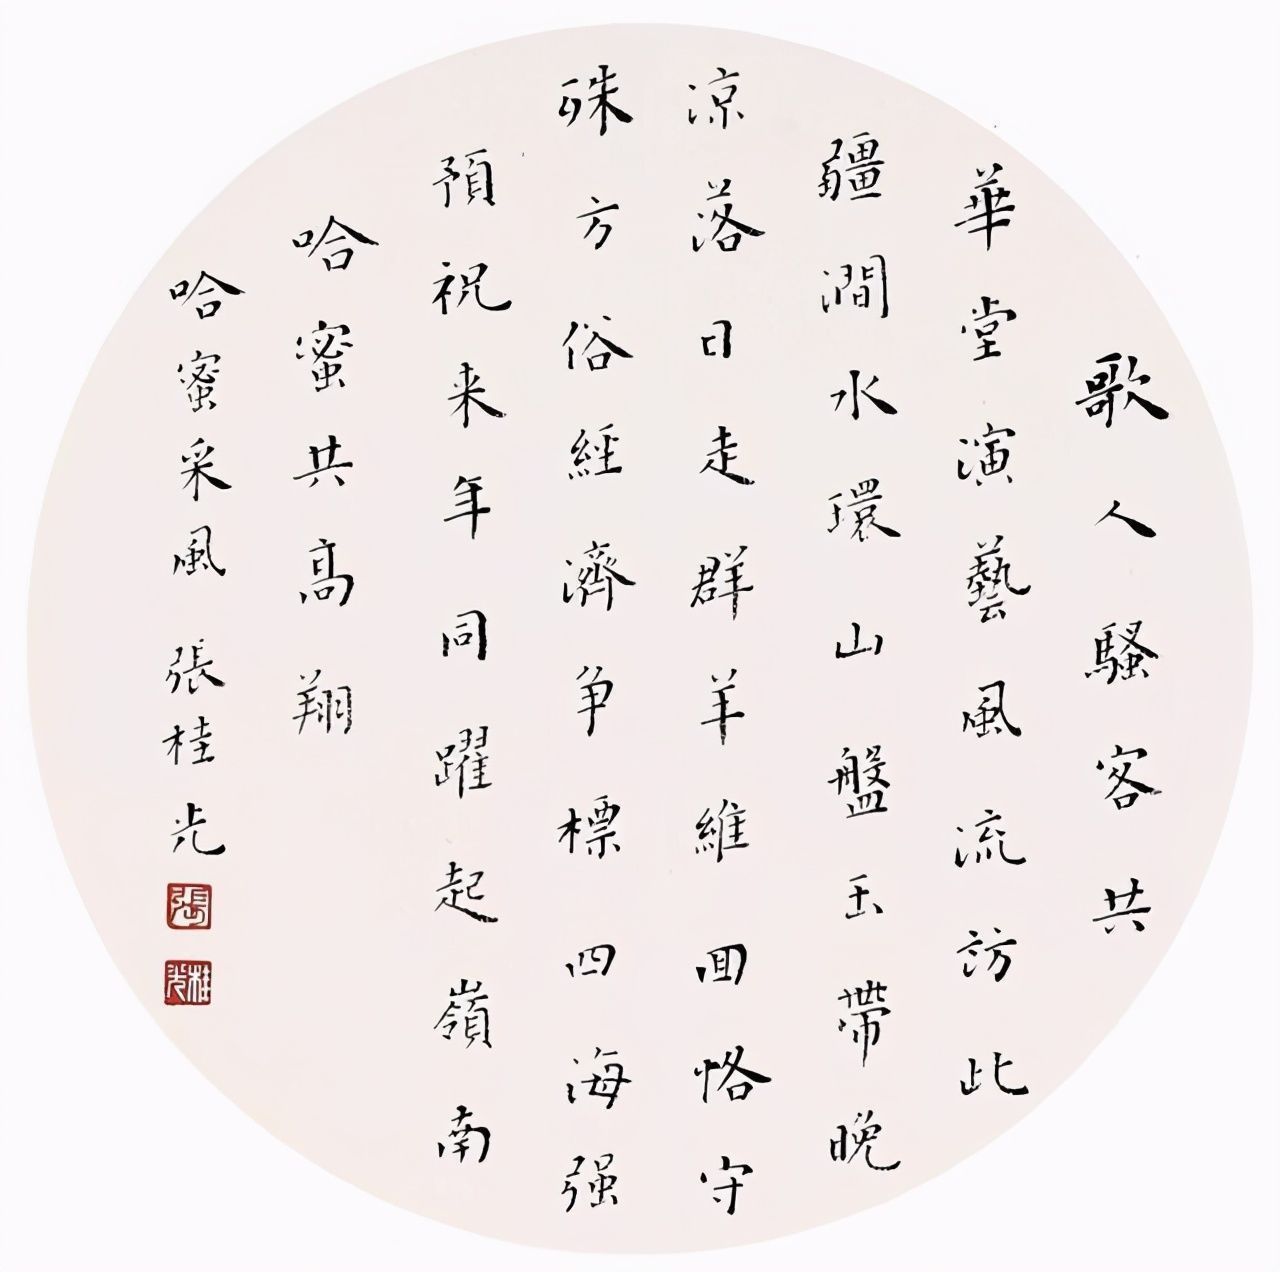 歌人騷客共
華堂演藝風流訪此
疆澗水環山盤玉帶晚
凉落日走群羊維回恪守
殊方俗經濟争標四海强
預祝来年同躍起嶺南
哈蜜共高翔
哈蜜采風 張桂光
張
桂光